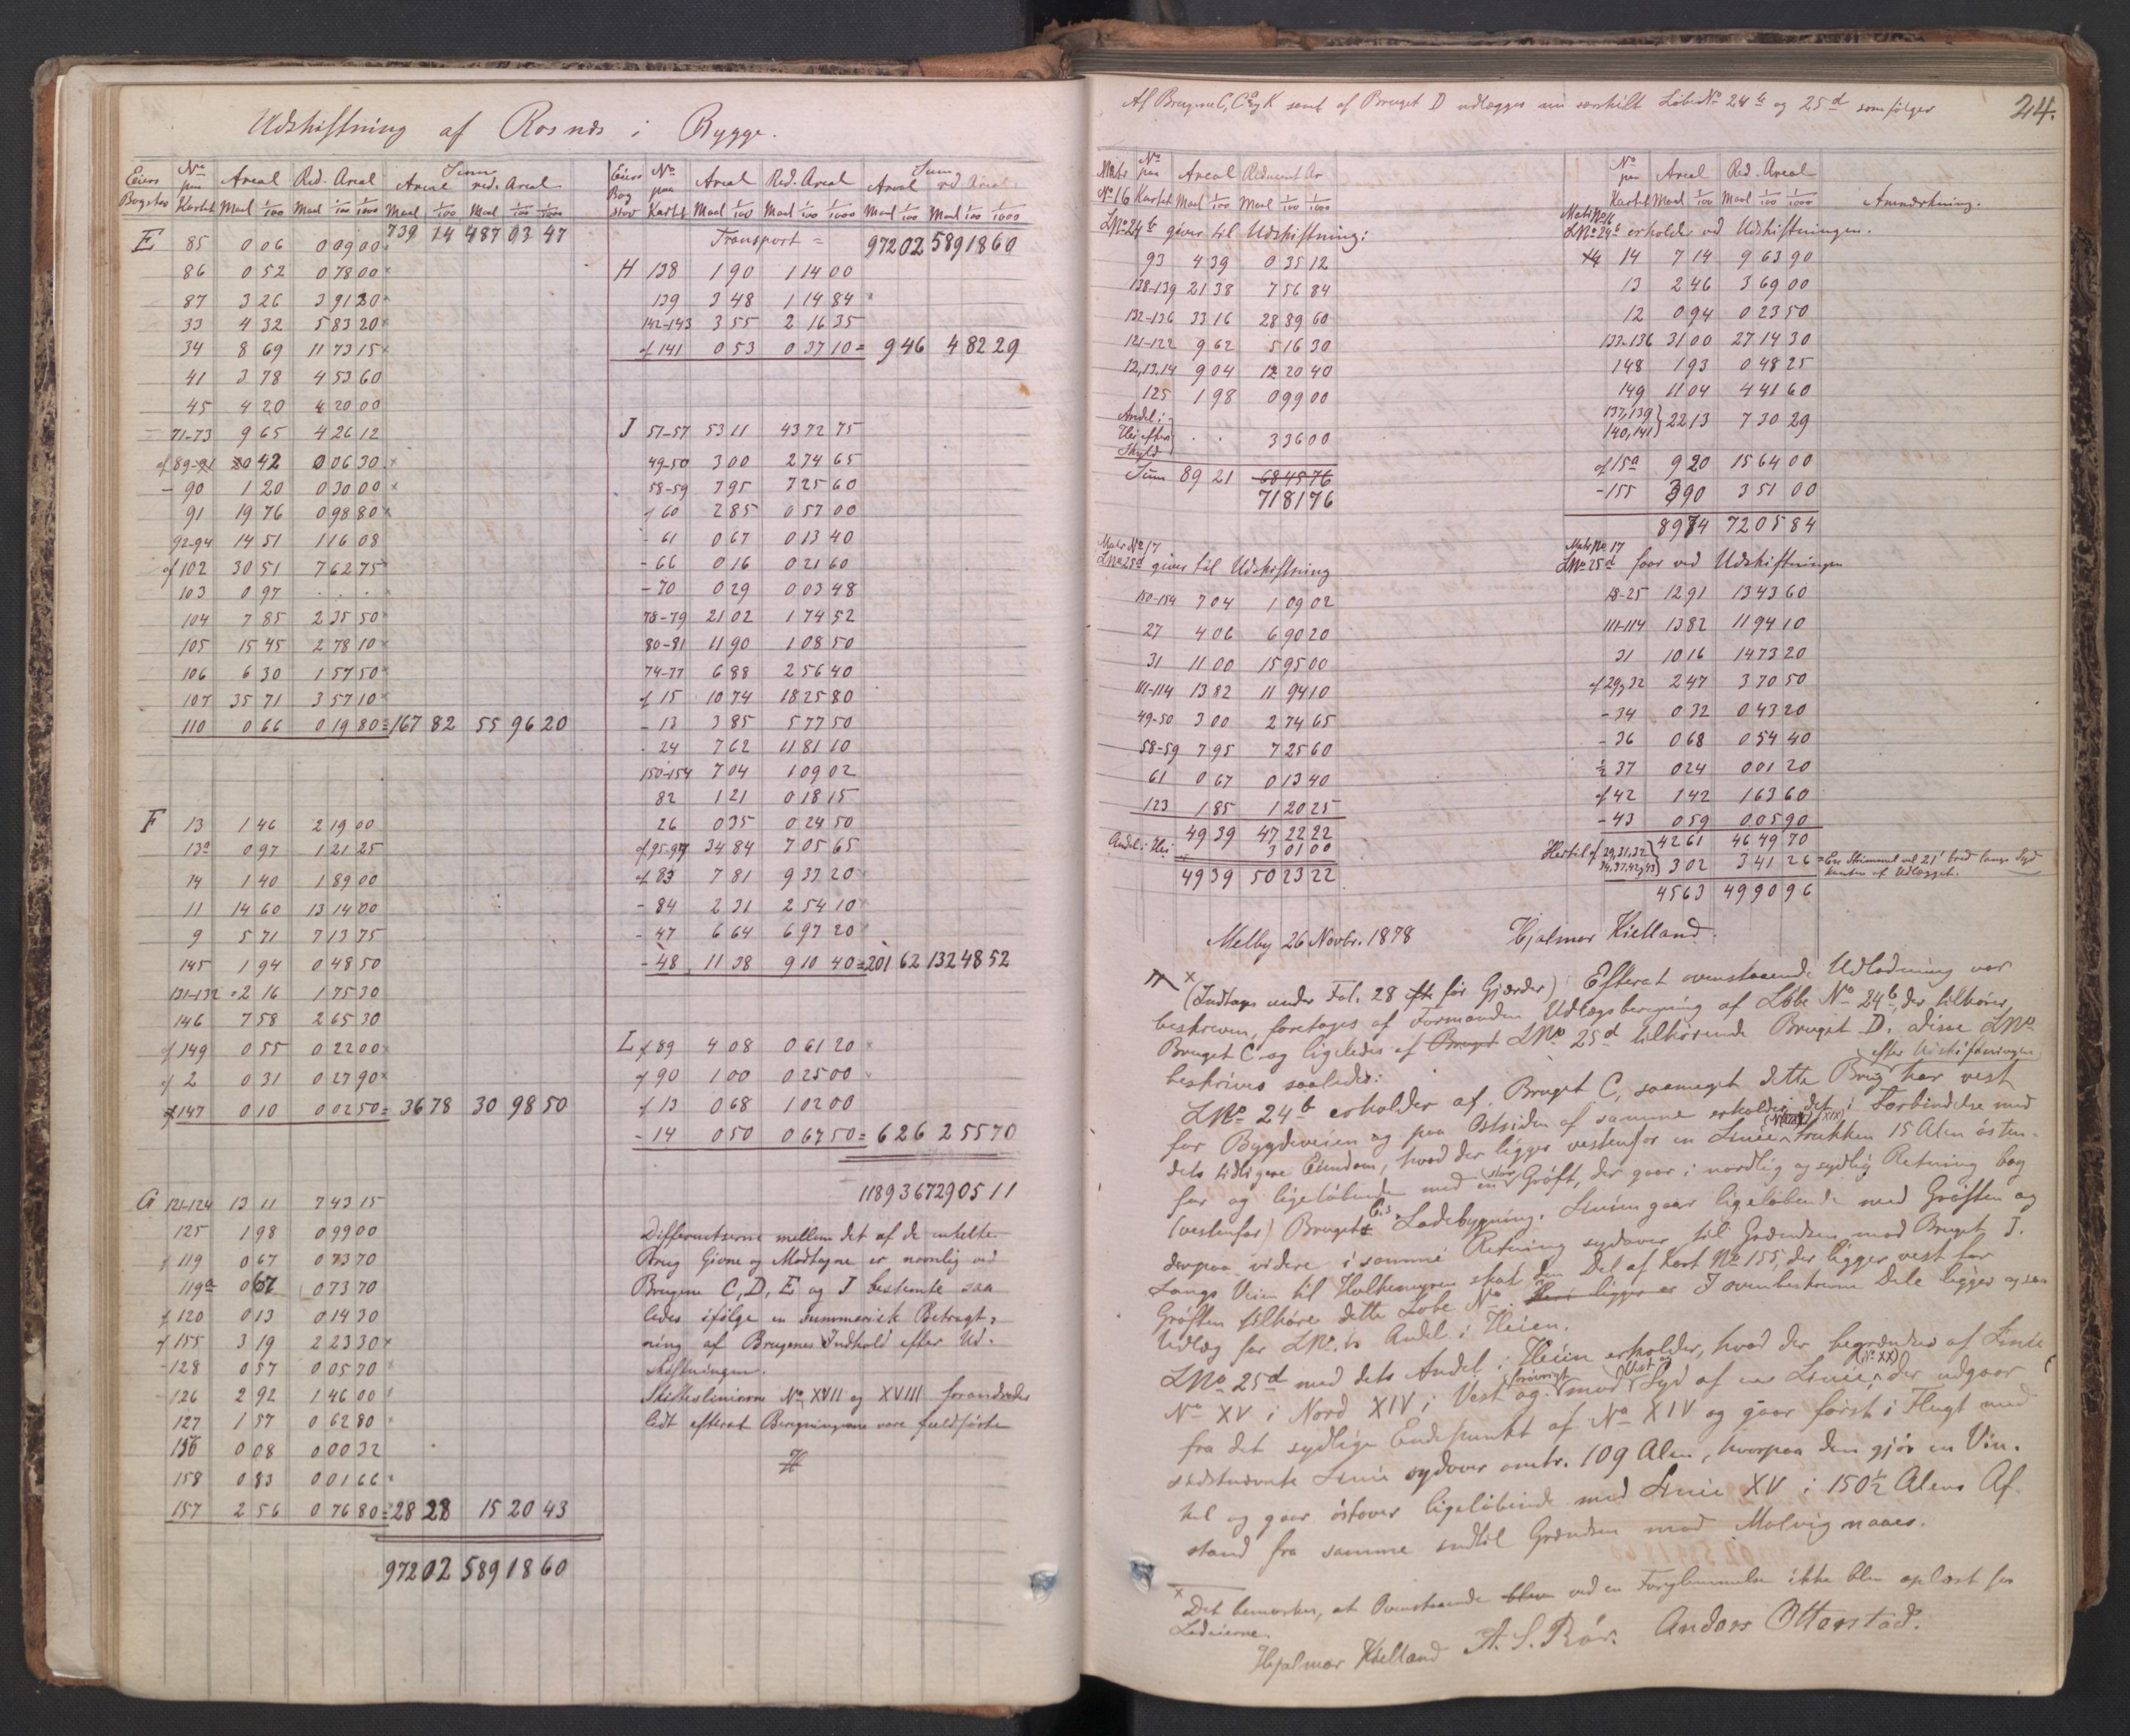 Udskiftning af Rosnæs i Rygge.
Eiers Bogstav | No paa Kartet | Areal Maal 1/100 | Red. Areal Maal 1/100 1/1000 | Sum Areal Maal 1/100 | red. Areal Maal 1/100 1/1000
739 14 487 93 47
E 85 0 06 0 09 00
86 0 52 0 78 00
87 3 26 3 91 20
33 4 32 5 83 20
34 8 69 11 73 15
41 3 78 4 53 60
45 4 20 4 20 00
71-73 9 65 4 26 12
af 89 0 42 0 06 30
- 90 1 20 0 30 00
91 19 76 0 98 80
92-94 14 51 1 16 08
af 102 30 51 7 62 75
103 0 97 . . .
104 7 85 2 35 50
105 15 45 2 78 10
106 6 30 1 57 50
107 35 71 3 57 10
110 0 66 0 19 80 = 167 82 55 96 20
F 13 1 46 2 19 00
13a 0 97 1 21 25
14 1 40 1 89 00
11 14 60 13 14 00
9 5 71 7 13 75
145 1 94 0 48 50
131-132 2 16 1 75 30
146 7 58 2 65 30
af 149 0 55 0 22 00
af 2 0 31 0 27 90
af 147 0 10 0 02 50 = 36 78 30 98 50
G 121-124 13 11 7 43 15
125 1 98 0 99 00
af 119 0 67 0 73 70
119a 0 67 0 73 70
af 120 0 13 0 14 30
af 155 3 19 2 23 30
- 128 0 57 0 05 70
- 126 2 92 1 46 00
127 1 57 0 62 80
156 0 08 0 00 32
158 0 83 0 01 66
157 2 56 0 76 80 = 28 28 15 20 43
972 02 589 18 60
Eiers Bogstav | No paa Kartet | Areal Maal 1/100 | Red. Areal Maal 1/100 1/1000 | Sum Areal Maal 1/100 | red Areal Maal 1/100 1/1000
Transport = 972 02 589 18 60
H 138 1 90 1 14 00
139 3 48 1 14 84
142-143 3 55 2 16 35
af 141 0 53 0 37 10 = 9 46 4 82 29
J 51-57 53 11 43 72 75
49-50 3 00 2 74 65
58-59 7 95 7 25 60
af 60 2 85 0 57 00
- 61 0 67 0 13 40
- 66 0 16 0 21 60
- 70 0 29 0 03 48
78-79 21 02 1 74 52
80-81 11 90 1 08 50
74-77 6 88 2 56 40
af 15 10 74 18 25 80
- 13 3 85 5 77 50
- 24 7 62 11 81 10
150-154 7 04 1 09 02
82 1 21 0 18 15
26 0 35 0 24 50
af 95-97 34 84 7 05 65
af 83 7 81 9 37 20
- 84 2 31 2 54 10
- 47 6 64 6 97 20
- 48 11 38 9 10 40 = 201 62 132 48 52
L af 89 4 08 0 61 20
af 90 1 00 0 25 00
af 13 0 68 1 02 00
- 14 0 50 0 67 50 = 6 26 2 55 70
1189 36 729 05 11
Differentserne mellem det af de enkelte
Brug Givne og Modtagne er nemlig ved
Brugene C, D, E og J bestemte saa
ledes ifølge en summarisk Betragt-
ning af Brugenes Indhold efter Ud-
skiftningen.
Skifteslinierne No XVII og XVIII forandredes
lidt efterat Beregningerne vare fuldførte
24.
Af Brugene C, Ca og K samt af Bruget D udlægges nu særskilt LøbeNo 24b og 25d som følger
Matr No 16 | No paa Kartet | Areal Maal 1/100 | Reduceret Ar Maal 1/100 1/1000
LNo 24b giver til Udskiftning:
93 4 39 0 35 12
138-139 21 38 7 56 84
132-136 33 16 28 89 60
121-122 9 62 5 16 30
12,13,14 9 04 12 20 40
125 1 98 0 99 00
Andel i Hei efter Skyld . . 3 36 00
Sum 89 21 68 45 76
71 81 76
Matr No 17
LNo 25d giver til Udskiftning
150-154 7 04 1 09 02
27 4 06 6 90 20
31 11 00 15 95 00
111-114 13 82 11 94 10
49-50 3 00 2 74 65
58-59 7 95 7 25 60
61 0 67 0 13 40
123 1 85 1 20 25
49 39 47 22 22
Andel i Hei 3 01 00
49 39 50 23 22
No paa Kartet | Areal Maal 1/100 | Red. Areal Maal 1/100 1/1000 | Anmærkning.
Matr No 16
LNo 24b erholder ved Udskiftningen.
14 7 14 9 63 90
13 2 46 3 69 00
12 0 94 0 23 50
133-136 31 00 27 14 30
148 1 93 0 48 25
149 11 04 4 41 60
137,139 140,141 } 22 13 7 30 29
af 15a 9 20 15 64 00
- 155 3 90 3 51 00
89 74 72 05 84
Matr No 17
LNo 25d faar ved Udskiftningen
18-25 12 91 13 43 60
111-114 13 82 11 94 10
31 10 16 14 73 20
af 29, 32 2 47 3 70 50
- 34 0 32 0 43 20
- 36 0 68 0 54 40
½ 37 0 24 0 01 20
af 42 1 42 1 63 60
- 43 0 59 0 05 90
42 61 46 49 70
Hertil af 29,31,32 34,37,42,43 } 3 02 3 41 26 = En Strimmel vel 21' bred langs Syd
kanten af Udlægget.
45 63 49 90 96
Melby 26 Novbr. 1878 Hjalmar Kielland.
(Indtages under Fol. 28 før Gjærder) Efterat ovenstaaende Udlodning var
beskreven, foretages af Formanden Udlægsberegning af Løbe No 24b, der tilhører
Bruget C og ligeledes af Bruget LNo 25d tilhørende Bruget D. disse LNo
beskrives saaledes: efter Udskiftningen
LNo 24b erholder af Bruget C, saameget dette Brug har vest
for Bygdeveien og paa Østsiden af samme erholder det i Forbindelse med
dets tidligere Eiendom, hvad der ligger vestenfor en Linie (No XIX) trukken 15 Alen østen-
for og ligeløbende med en stor Grøft, der gaar i nordlig og sydlig Retning bag
(vestenfor) Bruget C's Ladebygning. Linien gaar ligeløbende med Grøften og
derpaa videre i samme Retning sydover til Grændsen mod Bruget J.
Langs Veien til Holkemyren skal den Del af Kart No 155, der ligger vest for
Grøften tilhøre dette Løbe No. Heri ligger er I ovenbeskrevne Dele ligger ogsaa
Udlæg for LNo.'s Andel i Heien.
LNo 25d med dets Andel i Heien erholder, hvad der begrændses af Linie
No XV i Nord XIV i Vest og forøvrigt mod Vest og Syd af en Linie (No XX), der udgaar
fra det sydlige Endepunkt af No XIV og gaar først i Flugt med
sidstnævnte Linie sydover omtr. 109 Alen, hvorpaa den gjør en Vin-
kel og gaar østover ligeløbende med Linie XV i 150½ Alens Af-
stand fra samme indtil Grændsen mod Malvig naaes.
x Det bemærkes, at Ovenstaaende blev ved en Forglemmelse ikke blev oplæst for
Lodeierne.
Hjalmar Kielland A. S. Bør. Anders Ottarstad.